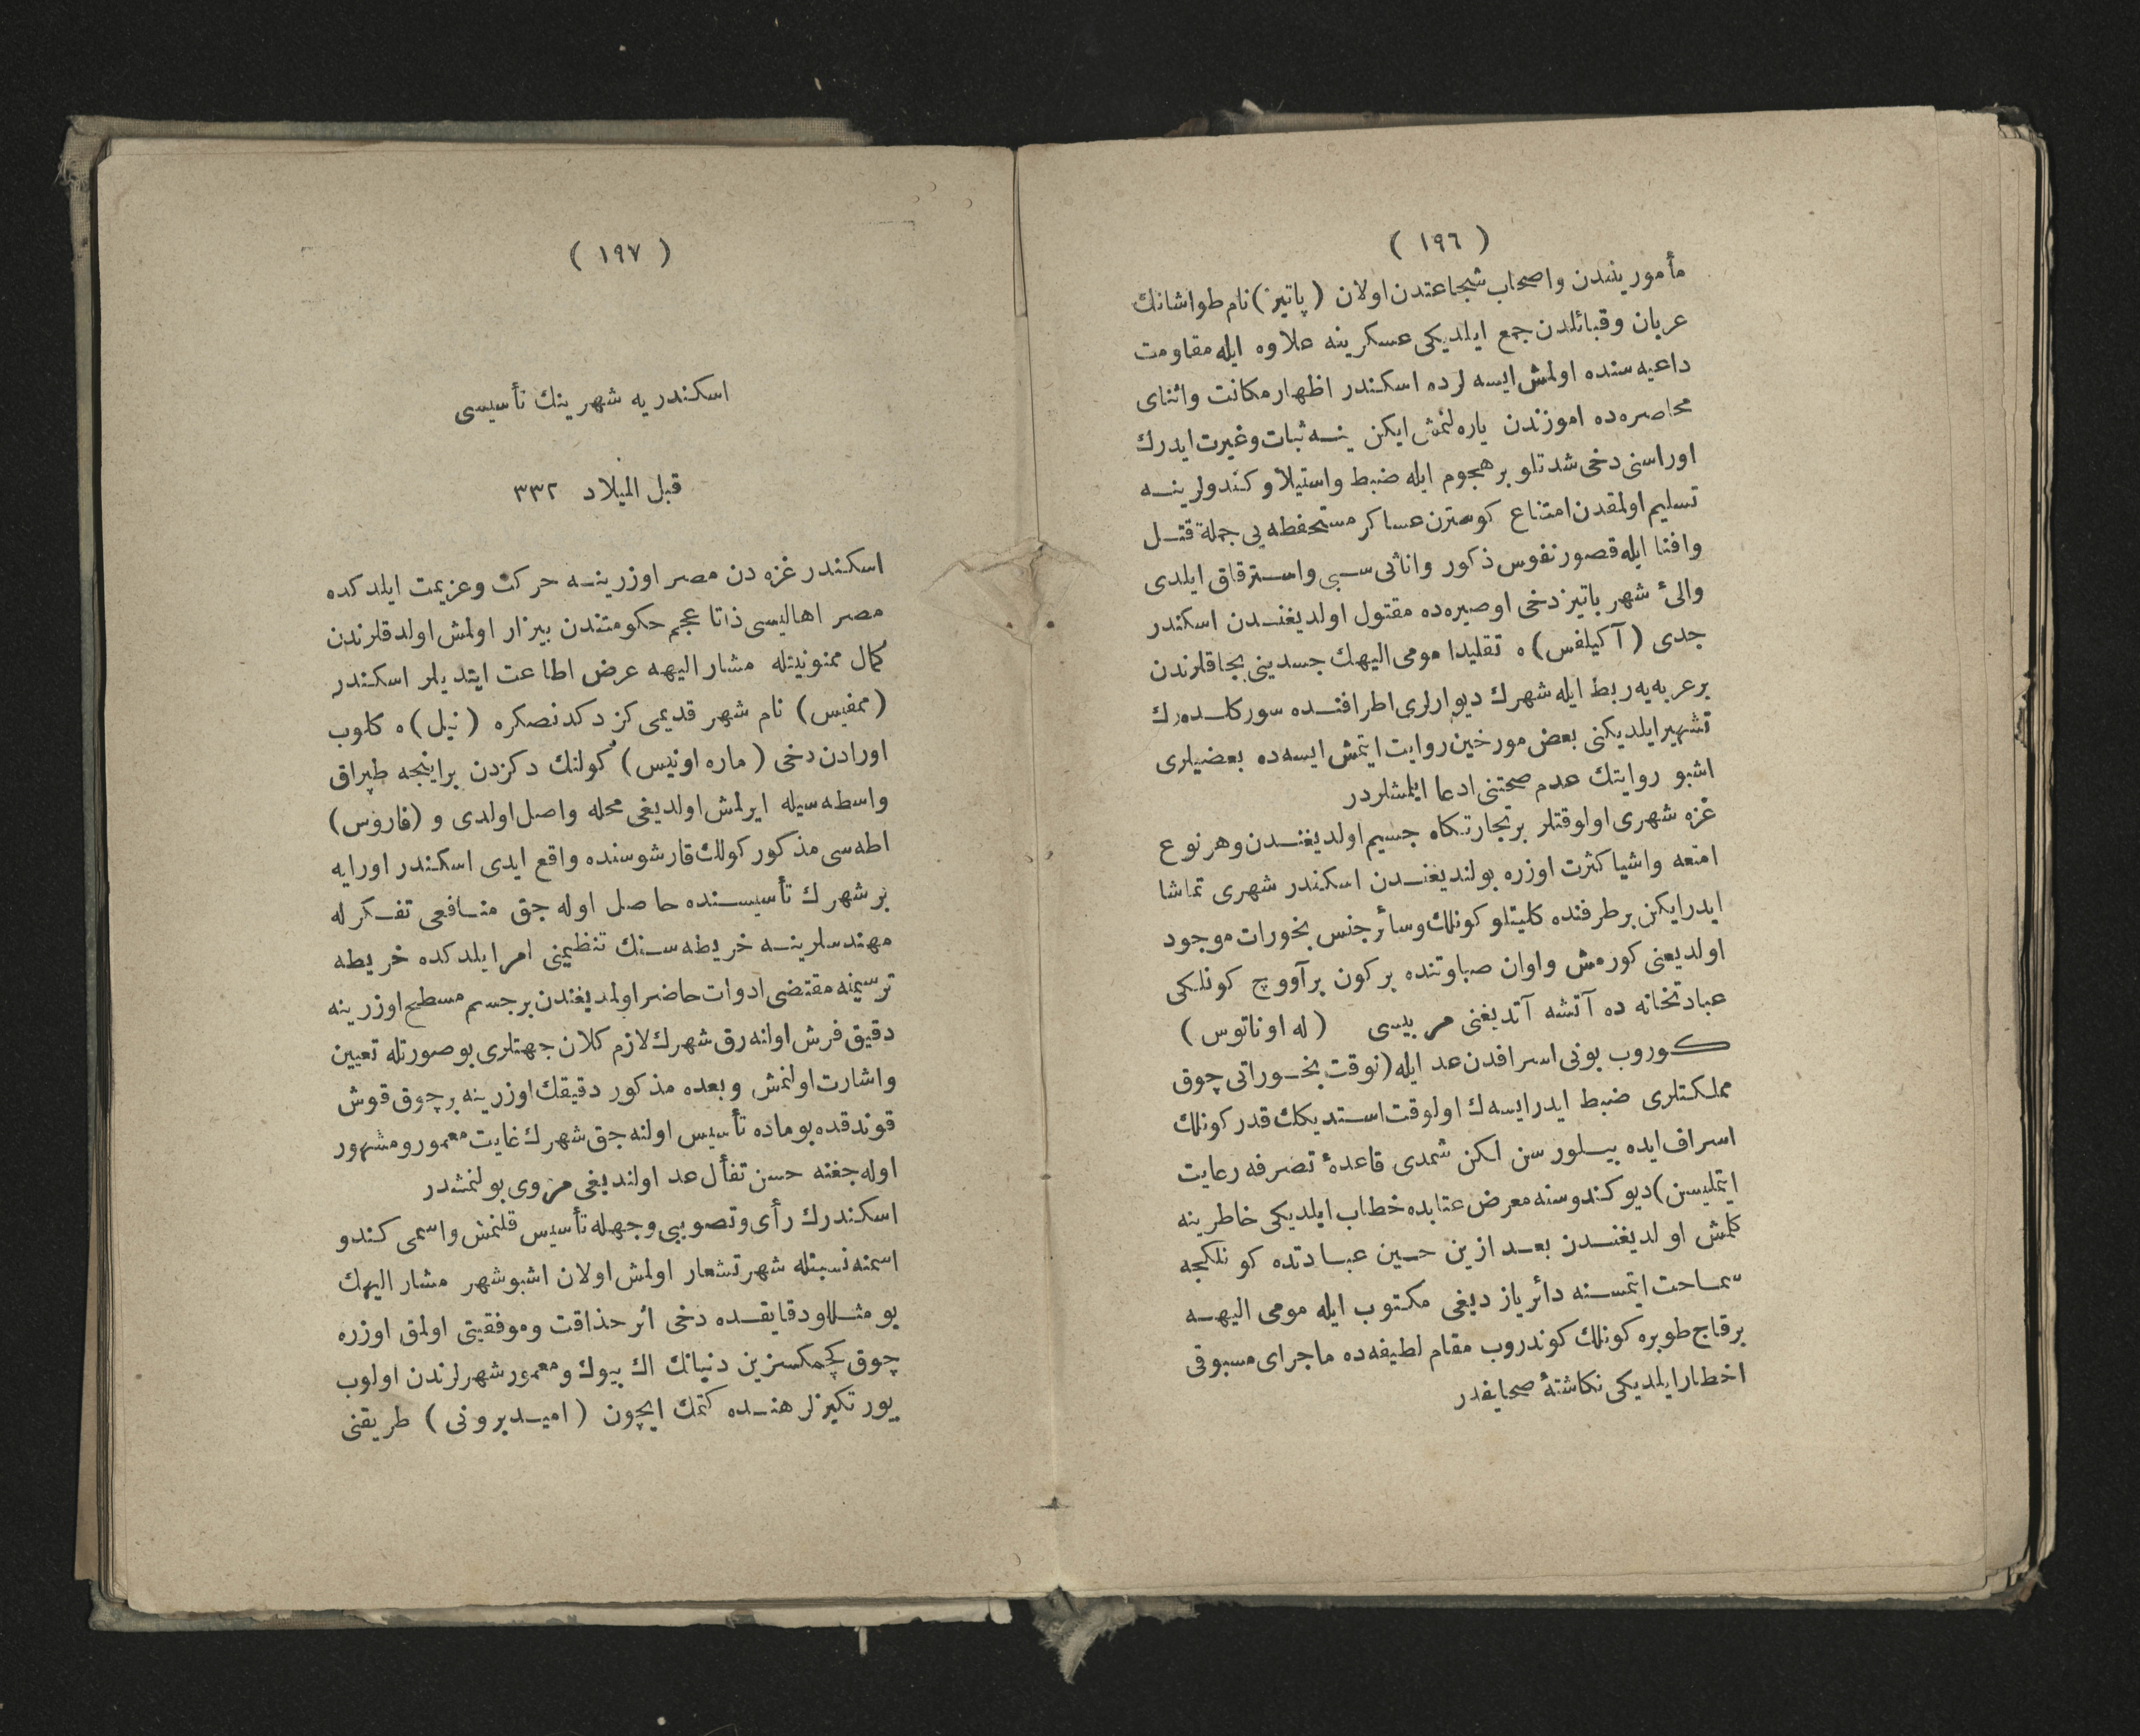 ( ١٩٦ )
مأمورينندن واصحاب شجاعتدن اولان (پاتيز) نام طواشانك
عربان وقبائلدن جمع ايلديكى عسكرينه علاوه ايله مقاومت
داعيه سنده اولمش ايسه لرده اسكندر اظهار مكانت واثناى
محاصره ده اموزندن ياره لنمش ايكن ينه ثبات وغيرت ايدرك
اوراسنى دخى شدتلو برهجوم ايله ضبط واستيلا و كندولرينه
تسليم اولمقدن امتناع كوسترن عساكر مستحفظه يى جملة قتل
وافنا ايله قصور نفوس ذكور واناثى سبى واسترقاق ايلدى
والئ شهر باتيز دخى اوصيره ده مقتول اولديغندن اسكندر
جدى (آكيلفس) ه تقليدا مومى اليهك جسدينى بجاقلرندن
برعربه يه ربط ايله شهرك ديوارلرى اطرافنده سوركلده رك
تشهير ايلديكنى بعض مورخين روايت ايتمش ايسه ده بعضيلرى
اشبو روايتك عدم صحتنى ادعا ايلمشلردر
غزه شهرى اولوقتلر برتجارتكاه جسيم اولديغندن وهر نوع
امتعه واشيا كثرت اوزره بولنديغندن اسكندر شهرى تماشا
ايدرايكن برطرفنده كليتلو كونلك وسائر جنس بخورات موجود
اولديغنى كورمش واوان صباوتنده بركون برآووچ كونلكى
عبادتخانه ده آتشه آتديغنى مربيسى (له اوناتوس)
كوروب بونى اسرافدن عد ايله (نوقت بخوراتى چوق
مملكتلرى ضبط ايدرايسه ك اولوقت استديكك قدر كونلك
اسراف ايده بيلورسن لكن شمدى قاعدۀ تصرفه رعايت
ايتمليسن) ديو كندوسنه معرض عتابده خطاب ايلديكى خاطرينه
كلمش اولديغندن بعد ازين حين عبادتده كونلكجه
سماحت ايتمسنه دائر يازديغى مكتوب ايله مومى اليهه
برقاج طوبره كونلك كوندروب مقام لطيفه ده ماجراى مسبوقى
اخطار ايلديكى نكاشتۀ صحايفدر
( ١٩٧ )
اسكندريه شهرينك تأسيسى
قبل الميلاد ٣٣٢
اسكندر غزه دن مصر اوزرينه حركت وعزيمت ايلدكده
مصر اهاليسى ذاتا عجم حكومتندن بيزار اولمش اولدقلرندن
كمال ممنونيتله مشار اليهه عرض اطاعت ايتديلر اسكندر
(ممفيس) نام شهر قديمى كزدكدنصكره (نيل) ه كلوب
اورادن دخى (ماره اونيس) كولنك دكزدن براينجه طپراق
واسطه سيله ايرلمش اولديغى محله واصل اولدى و (فاروس)
اطه سى مذكور كولك قارشوسنده واقع ايدى اسكندر اورايه
بر شهرك تأسيسنده حاصل اوله جق منافعى تفكر له
مهندسلرينه خريطه سنك تنظيمنى امر ايلدكده خريطه
ترسيمنه مقتضى ادوات حاضر اولمديغندن برجسم مسطح اوزرينه
دقيق فرش اولنه رق شهرك لازم كلان جهتلرى بو صورتله تعيين
واشارت اولنمش وبعده مذكور دقيقك اوزرينه برچوق قوش
قوندقده بوماده تأسيس اولنه جق شهرك غايت معمور ومشهور
اوله جغنه حسن تفأل عد اولنديغى مروى بولنمشدر
اسكندرك رأى وتصويبى وجهله تأسيس قلنمش واسمى كندو
اسمنه نسبتله شهرتشعار اولمش اولان اشبو شهر مشار اليهك
بو مثللو دقايقده دخى اثر حذاقت وموفقيتى اولمق اوزره
چوق كچمكسزين دنيانك اك بيوك ومعمور شهرلرندن اولوب
پورتكيزلر هنده كتمك ايچون (اميد برونى) طريقنى